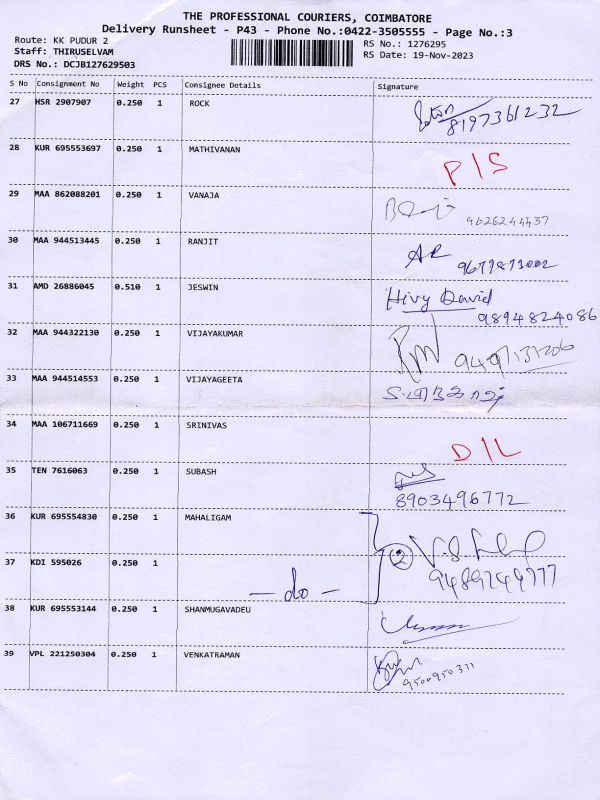 THE PROFESSIONAL COURIERS, COIMBATORE
Delivery Runsheet - P43 - Phone No.:0422-3505555 - Page No.:3
Route: KK PUDUR 2
RS No.: 1276295
Staff: THIRUSELVAM
RS Date: 19-Nov-2023
DRS No.: DCJB127629503
S No Consignment No Weight PCS Consignee Details Signature
27 HSR 2907907 0.250 1 ROCK
8197361232
28 KUR 695553697 0.250 1 MATHIVANAN
P/S
29 MAA 862088201 0.250 1 VANAJA
9626244437
30 MAA 944513445 0.250 1 RANJIT
AR
31 AMD 26886045 0.510 1 JESWIN
Hivy David
9894824086
32 MAA 944322130 0.250 1 VIJAYAKUMAR
33 MAA 944514553 0.250 1 VIJAYAGEETA
34 MAA 106711669 0.250 1 SRINIVAS
D/L
35 TEN 7616063 0.250 1 SUBASH
8903496772
36 KUR 695554830 0.250 1 MAHALIGAM
2
37 KDI 595026 0.250 1
9489244777
- do -
38 KUR 695553144 0.250 1 SHANMUGAVADEU
39 VPL 221250304 0.250 1 VENKATRAMAN
9500950311